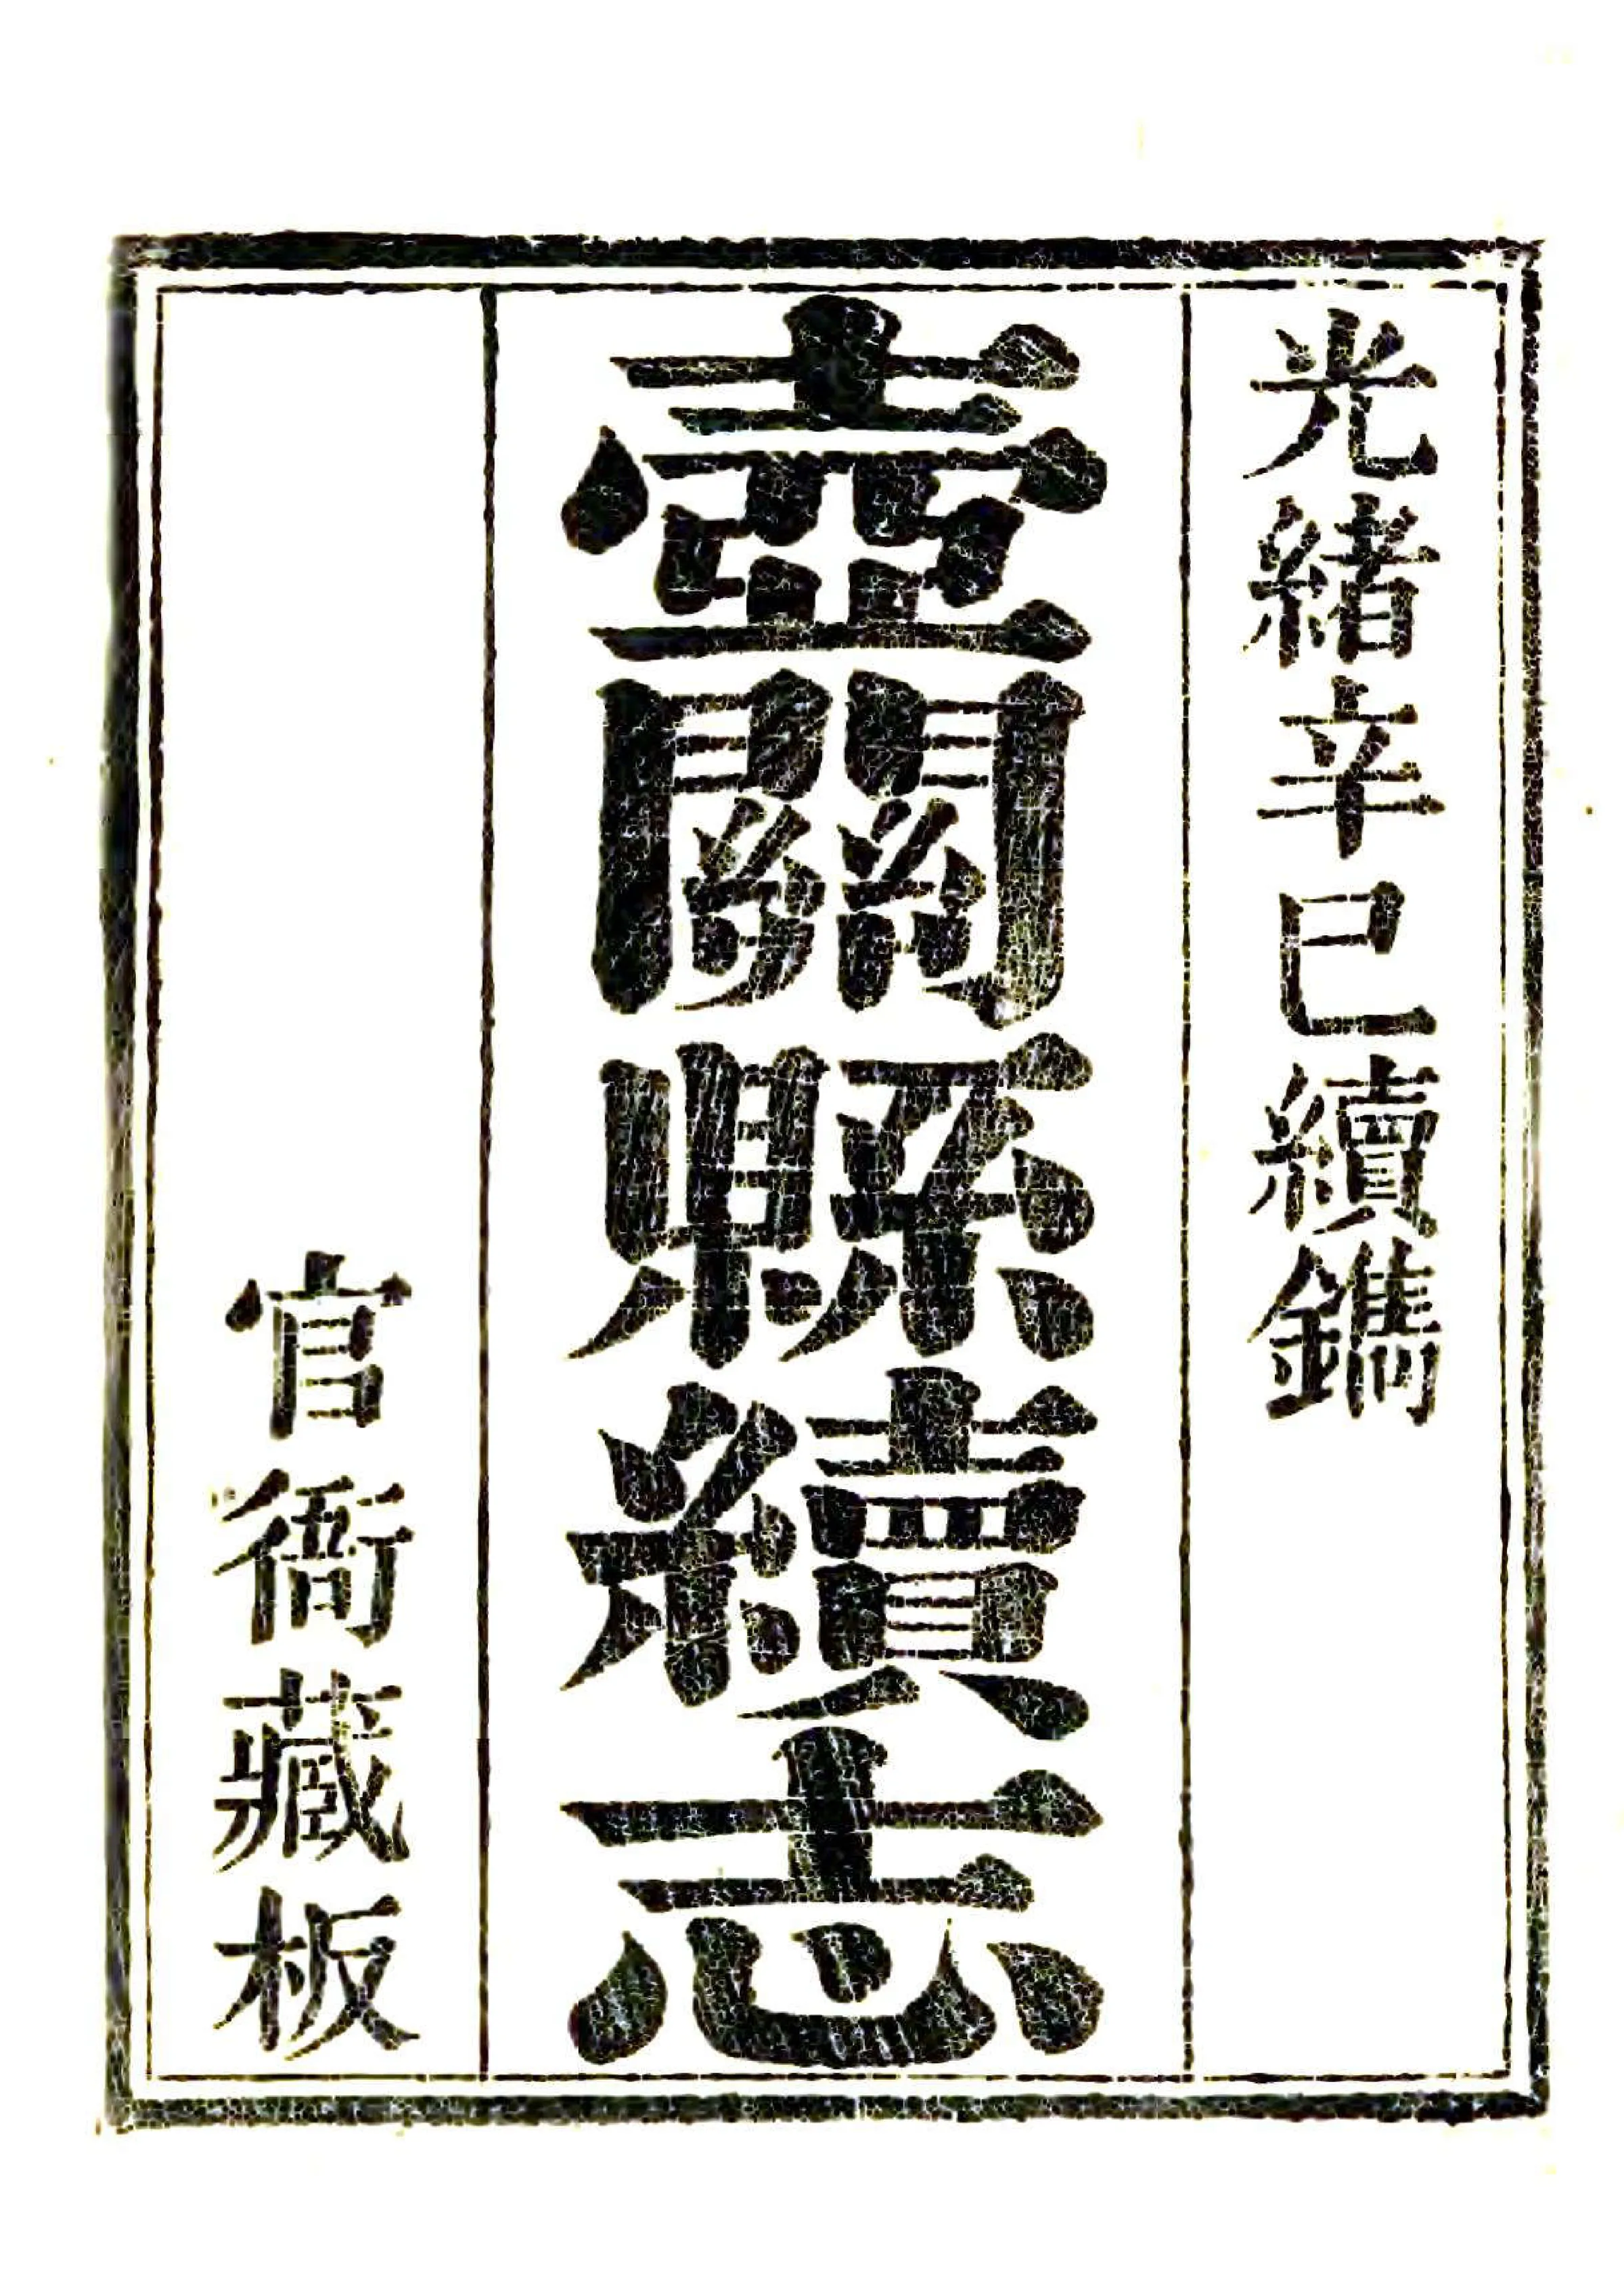 光緒辛巳續鐫
壺關縣續志
官衙藏板